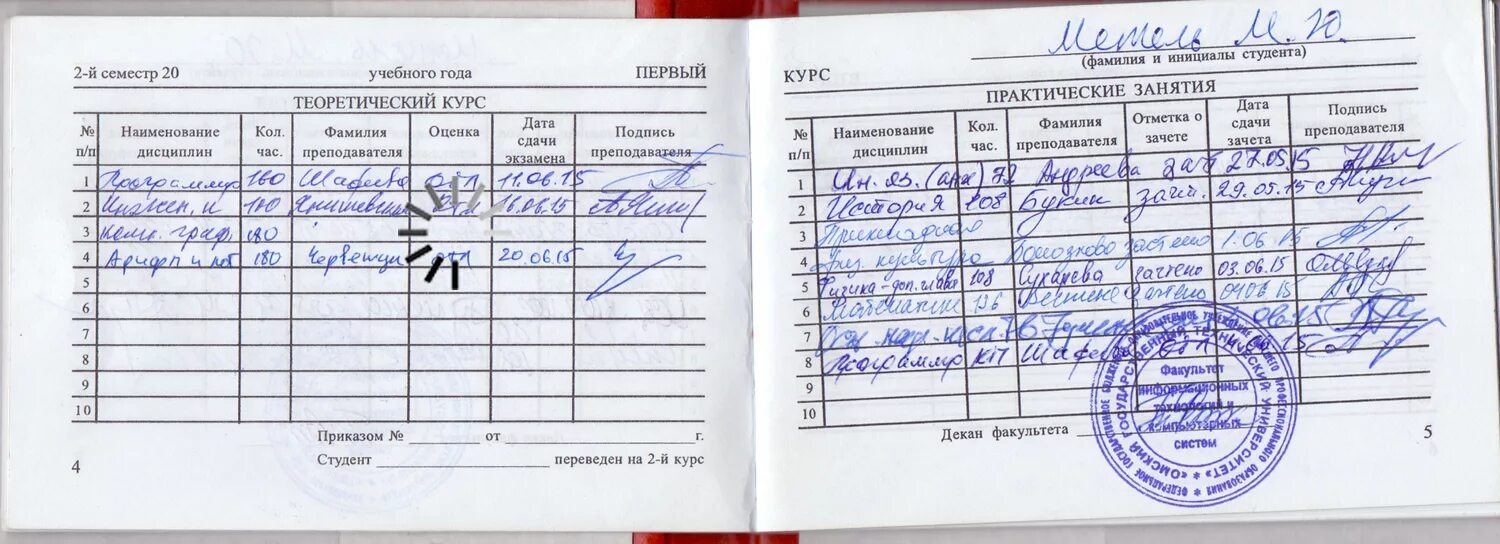 2-й семестр 20 учебного года ПЕРВЫЙ
ТЕОРЕТИЧЕСКИЙ КУРС
№ п/п Наименование дисциплин Кол. час. Фамилия преподавателя Оценка Дата сдачи экзамена Подпись преподавателя
1 Программир 160 отл 11.06.15
2 Инжен. и 100 16.06.15
3 комп. граф. 180
4 180 отл 20.06.15
5
6
7
8
9
10
Приказом № от г.
Студент переведен на 2-й курс
4
Метель М. Ю.
(фамилия и инициалы студента)
КУРС
ПРАКТИЧЕСКИЕ ЗАНЯТИЯ
№ п/п Наименование дисциплин Кол. час. Фамилия преподавателя Отметка о зачете Дата сдачи зачета Подпись преподавателя
1 Ин. яз. (англ) 72 Андреева зач 27.05.15
2 История 108 Букин зачт. 29.05.15
3 Прикладная
4 физ. культура зачтено 1.06.15
5 Физика-доп. главы 108 Сукарева зачтено 03.06.15
6 Математика 126 зачтено 04.06.15
7
8 Программир КП отл 15
9
10
Декан факультета
5
ФЕДЕРАЛЬНОЕ ГОСУДАРСТВЕННОЕ БЮДЖЕТНОЕ ОБРАЗОВАТЕЛЬНОЕ УЧРЕЖДЕНИЕ ВЫСШЕГО ПРОФЕССИОНАЛЬНОГО ОБРАЗОВАНИЯ
«ОМСКИЙ ГОСУДАРСТВЕННЫЙ ТЕХНИЧЕСКИЙ УНИВЕРСИТЕТ»
Факультет
информационных
технологий и
компьютерных
систем